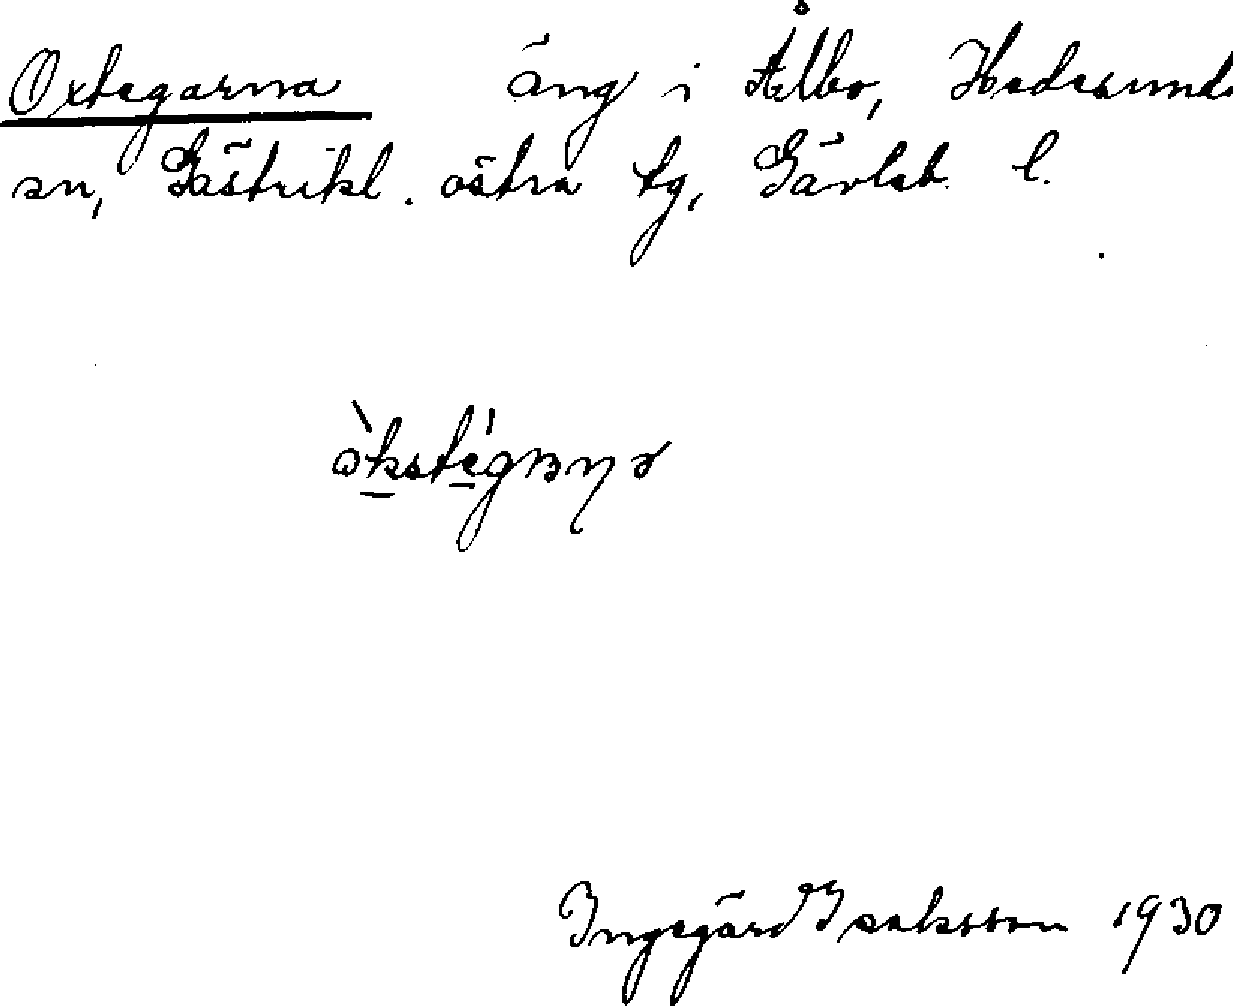 Oxtegarna äng i Ålbo, Hedesunda
sn, Gästrikl. östra tg, Gävleb. l.
Ingegärd Isaksson 1930